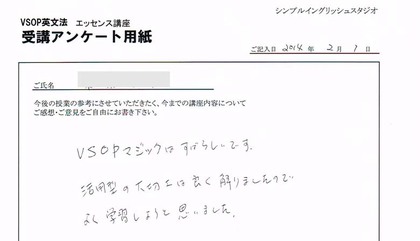 シンプルイングリッシュスタジオ
VSOP英文法 エッセンス講座
受講アンケート用紙
ご記入日 2014 年 2 月 1 日
ご氏名
今後の授業の参考にさせていただきたく、今までの講座内容について
ご感想・ご意見をご自由にお書き下さい。
VSOPマジックはすばらしいです。
活用型の大切さは良く解りましたので
よく学習しようと思いました。